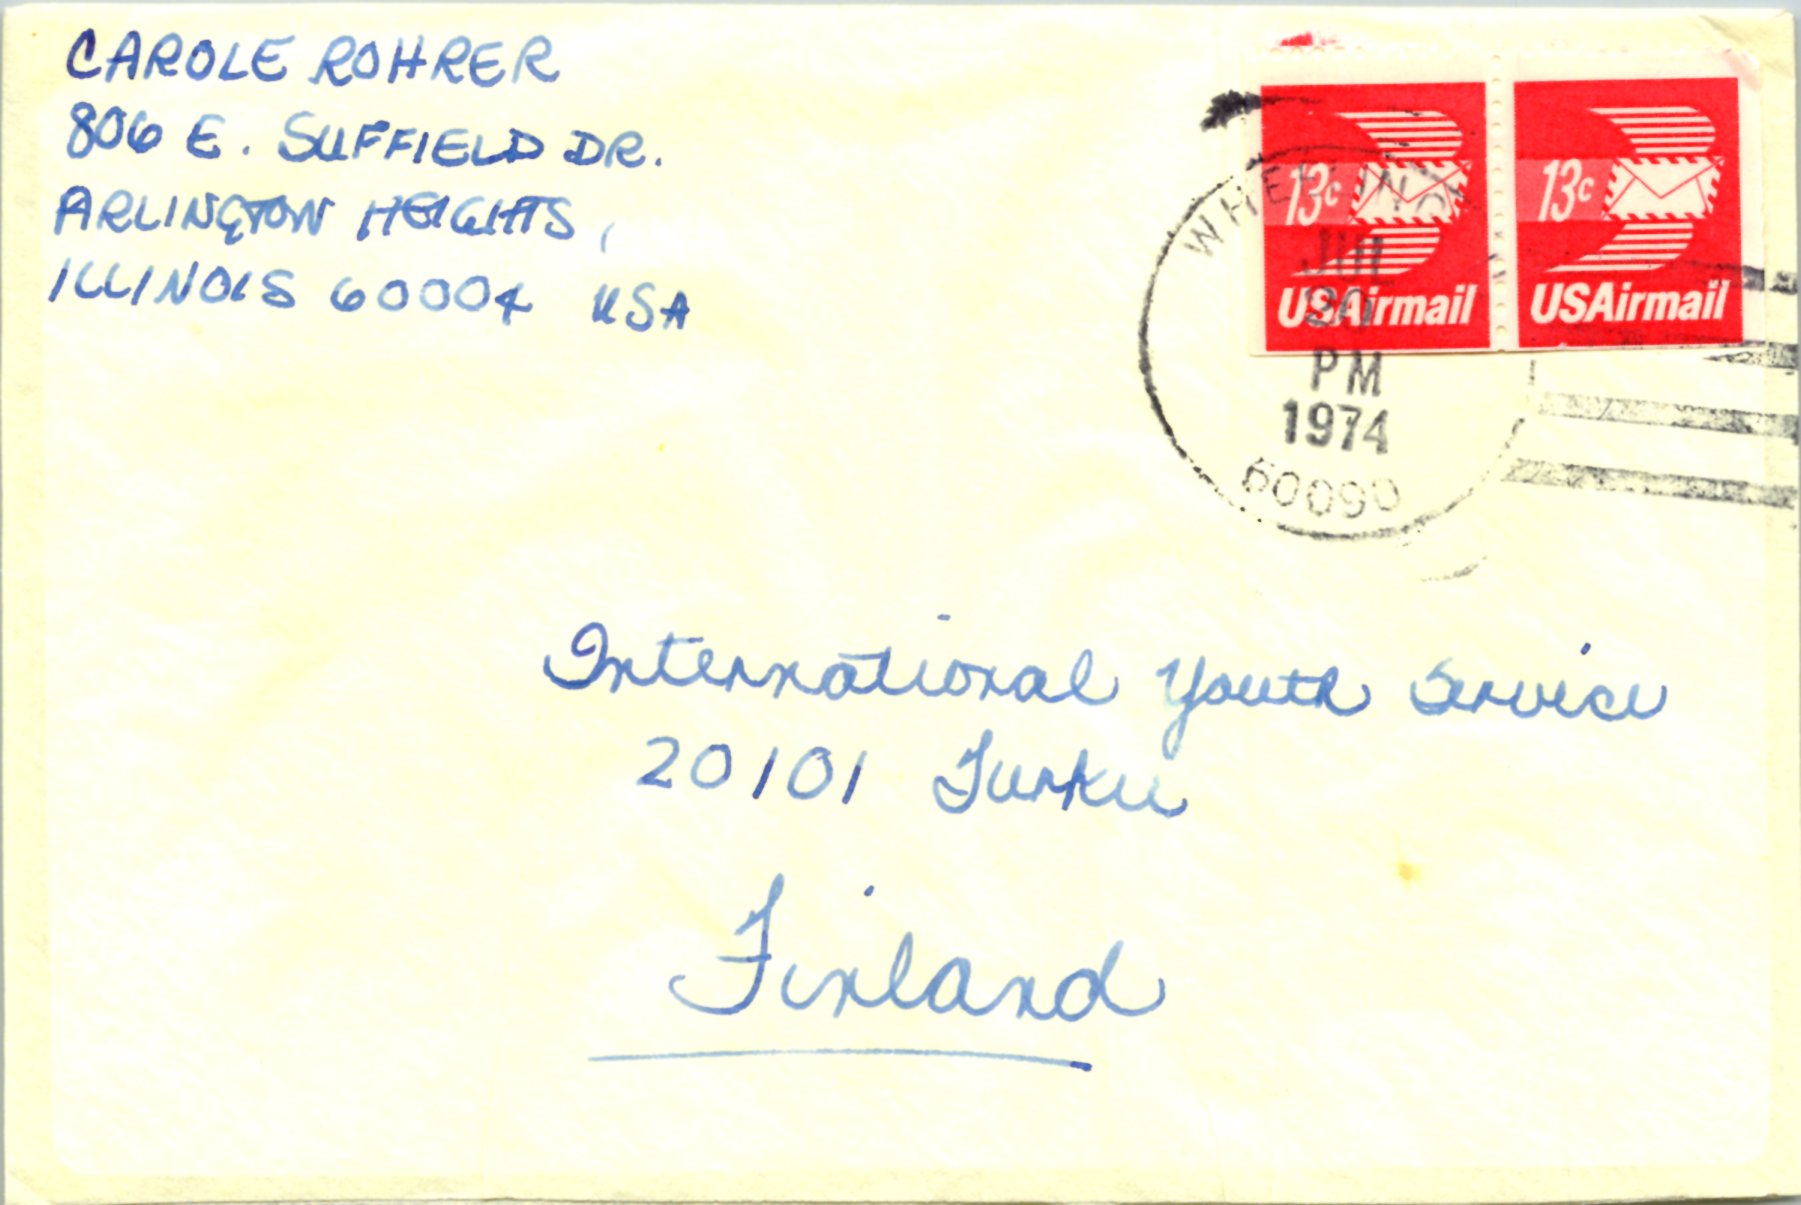 CAROLE ROHRER
806 E. SUFFIELD DR.
ARLINGTON HEIGHTS,
ILLINOIS 60004 USA
13c
USAirmail
13c
USAirmail
WHEELING
PM
1974
60090
International Youth Service
20101 Turku
Finland